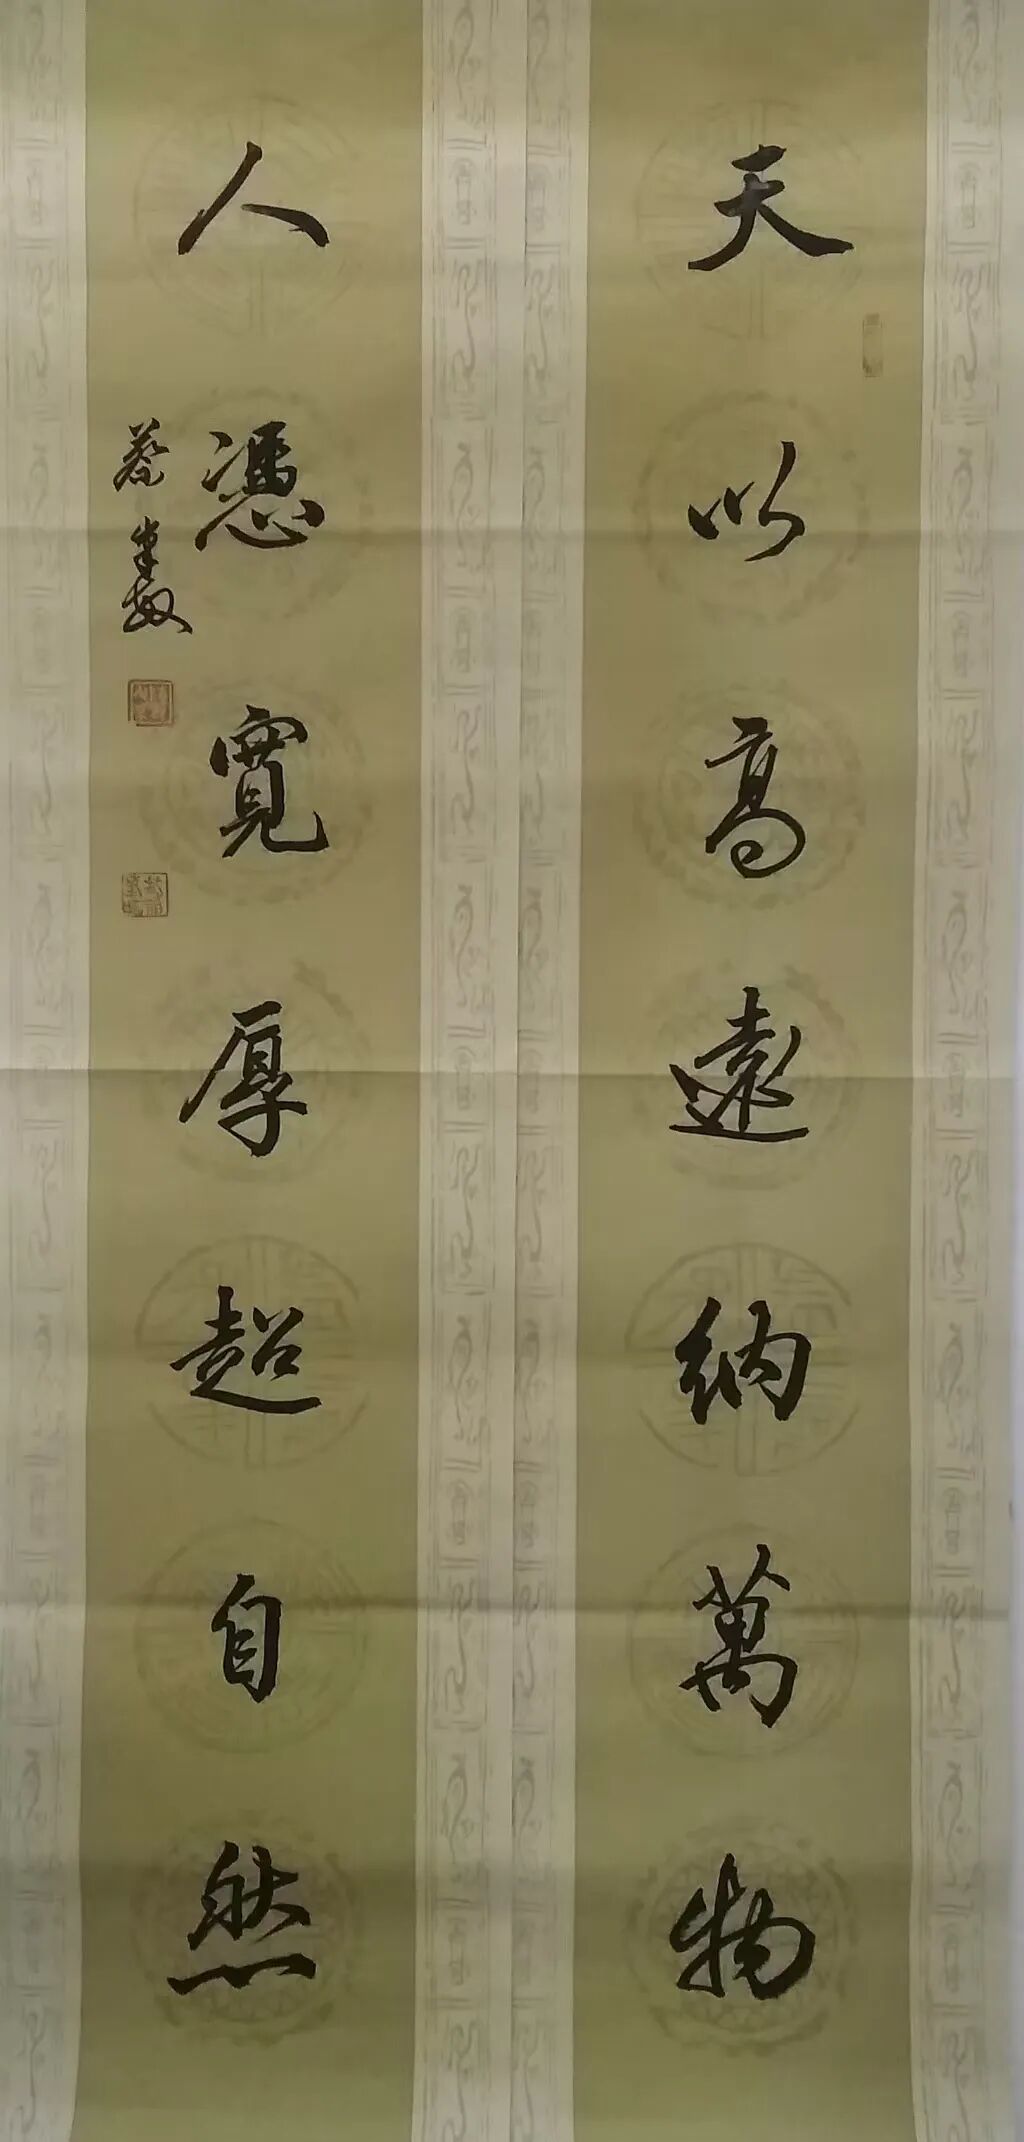 天以高遠納萬物
人憑寬厚超自然